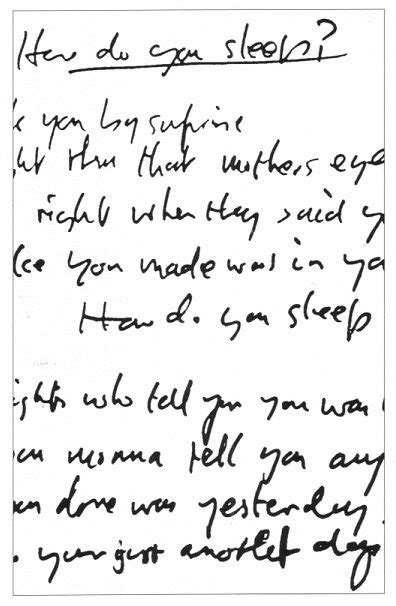 How do you sleep?
you by suprise
ht thru that mothers eye
right when they said y
ke you made was in yo
How do you sleep
ights who tell you you was
momma tell you any
done was yesterday
your just another day